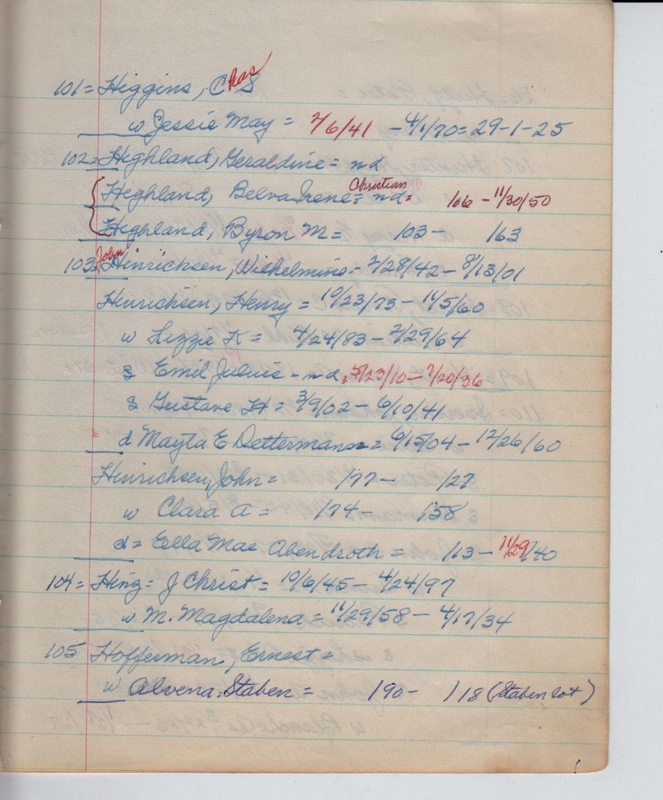 101 = Higgins, Chas S
w Jessie May = 2/6/41 - 4/1/70 = 29-1-25
102 = Highland, Geraldine = nd
Highland, Belva Irene = Christian nd = 1/06 - 11/30/50
Highland, Byron M = 103 - 163
103 = John Hinrichsen, Wilhelmina - 2/28/42 - 8/13/01
Hinrichsen, Henry = 10/23/73 - 11/5/60
w Lizzie K = 4/24/83 - 2/29/64
s Emil Julius - nd, 5/23/10 - 7/20/36
s Gustave H = 3/9/02 - 6/10/41
d Mayta E Dettermann = 6/15/04 - 12/26/60
Hinrichsen, John = /77 - /27
w Clara A = /74 - /58
d = Ella Mae Abendroth = /13 - 11/29/40
104 = Hing = J Christ = 10/6/45 - 4/24/97
w M. Magdalena = 11/29/58 - 4/17/34
105 Hofferman, Ernest =
w Alvena Staben = /90 - /18 (Staben lot)